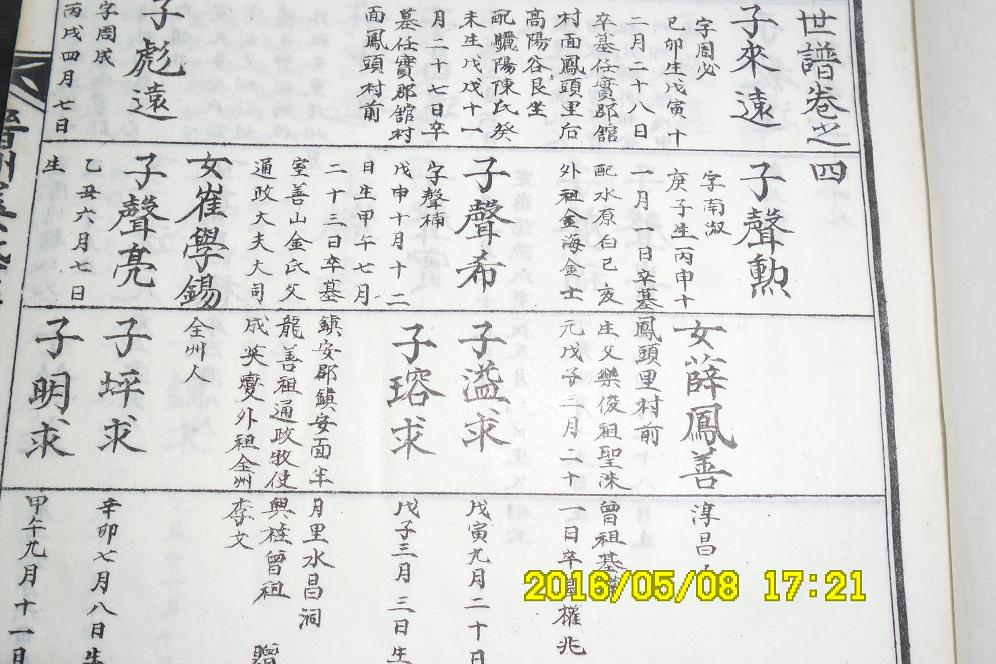 世譜卷之四
子來遠
字周必
己卯生戊寅十
二月二十八日
卒墓任實郡舘
村面鳳頭里后
高陽谷艮坐
配驪陽陳氏癸
未生戊戌十一
月二十七日卒
墓任實郡舘村
面鳳頭村前
子彪遠
字周成
丙戌四月七日
子聲勲
字南淑
庚子生丙申十
一月一日卒墓鳳頭里村前
配水原白己亥生父樂俊祖聖洙曾祖基
外祖金海金士元戊子三月二十一日卒墓權兆
子聲希
字聲楠
戊申十月十二
日生甲午七月
二十三日卒墓鎭安郡鎭安面半月里水昌洞
室善山金氏父龍善祖通政牧使興祿曾祖
通政大夫大司成英燮外祖全州李文
女崔學錫
全州人
子聲亮
乙丑六月七日
生
女薛鳳善
淳昌
子溢求
戊寅九月二十日
子瑢求
戊子三月三日生
子坪求
辛卯七月八日生
子明求
甲午九月十一日
2016/05/08 17:21